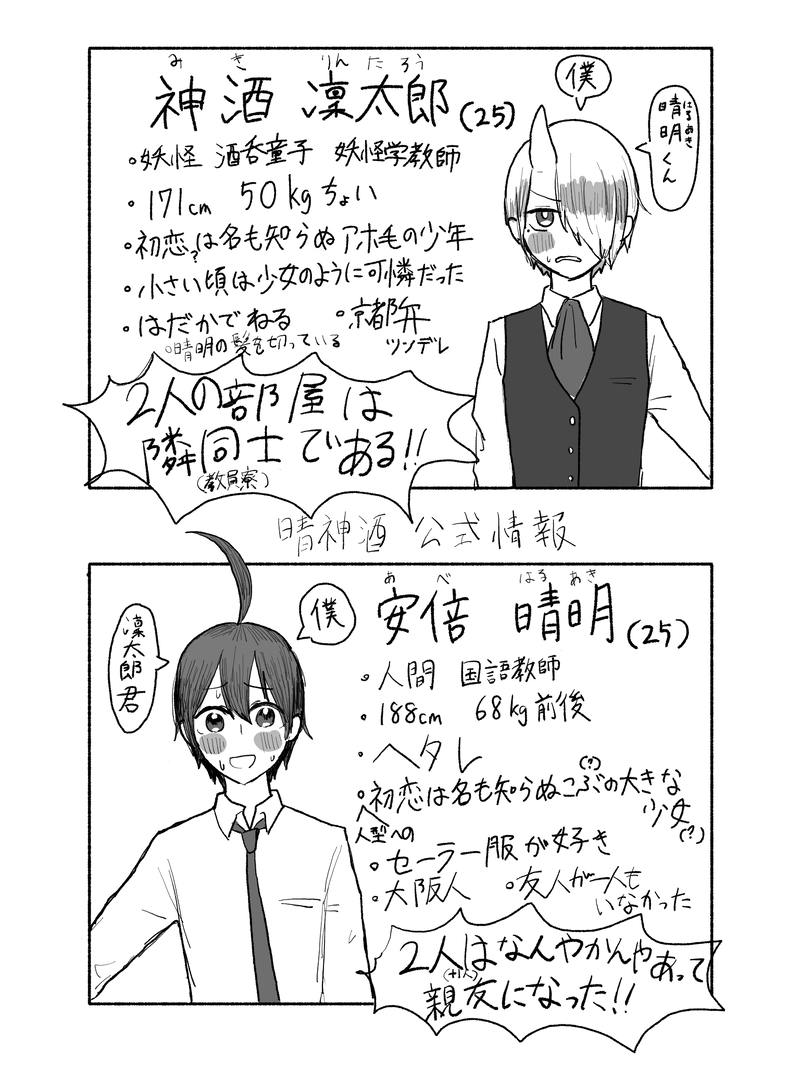 みき りんたろう
神酒 凛太郎(25)
僕
晴明くん
はるあき
・妖怪 酒呑童子 妖怪学教師
・171cm 50kgちょい
・初恋?は名も知らぬアホ毛の少年
・小さい頃は少女のように可憐だった
・はだかでねる ・京都弁
・晴明の髪を切っている ツンデレ
2人の部屋は
隣同士である!!
(教員寮)
晴神酒 公式情報
あべ はるあき
安倍 晴明(25)
僕
凛太郎君
・人間 国語教師
・188cm 68kg前後
・ヘタレ
・初恋は名も知らぬこぶ(?)の大きな
少女(?)
人型への
・セーラー服が好き
・大阪人 ・友人が一人も
いなかった
2人はなんやかんやあって
親友になった!!